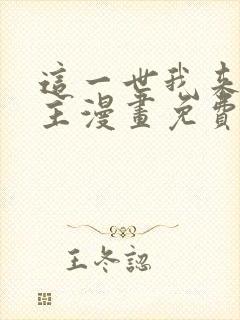 這一世我来
主漫畫免費
王冬認